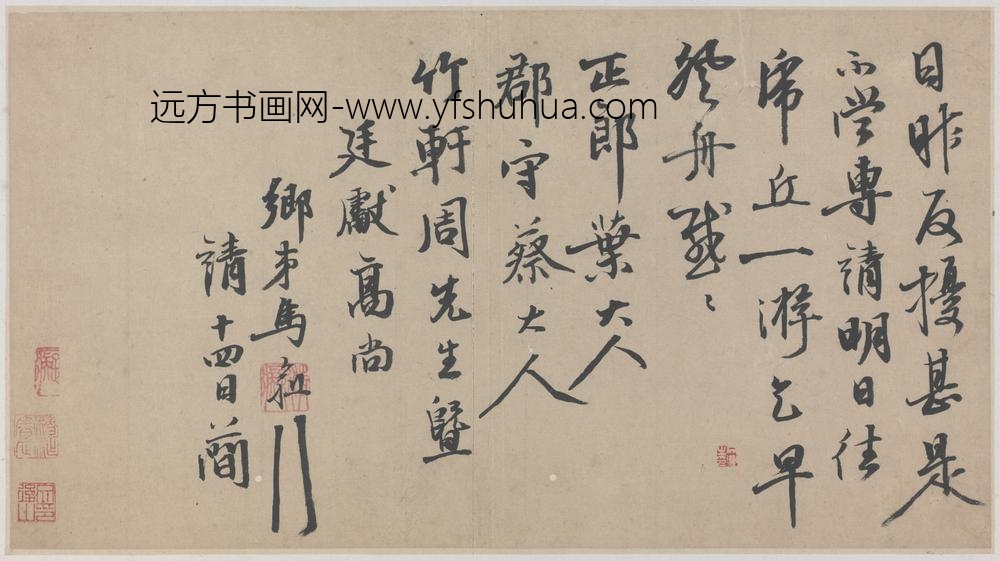 日昨反擾甚是
不當專請明日往
虎丘一游乞早
登舟感〻
正郎葉大人
郡守蔡大人
竹軒周先生暨
廷獻高尚
鄉末馬紹
請十四日簡
远方书画网-www.yfshuhua.com